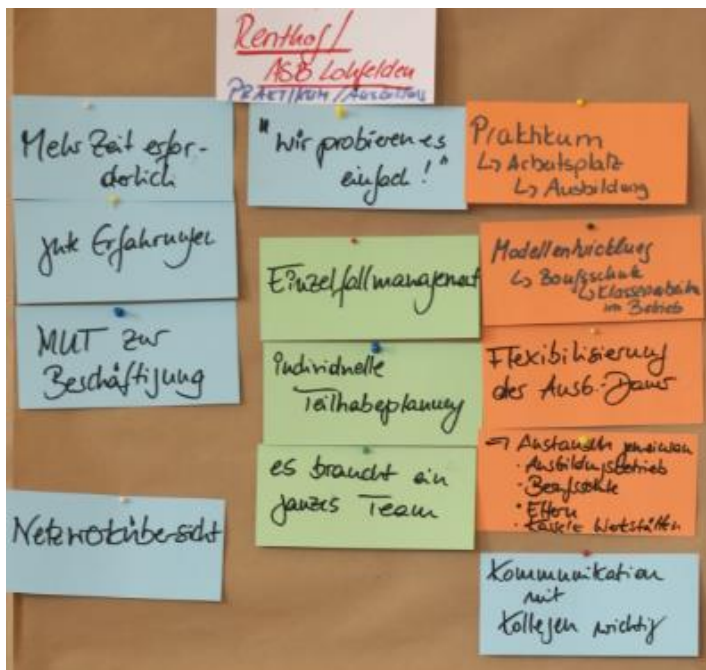 Renthof /
ASB Lohfelden
PRAKTIKUM /
Mehr Zeit erfor-
derlich
gute Erfahrungen
MUT zur
Beschäftigung
Netzwerkübersicht
"Wir probieren es
einfach!"
Einzelfallmanagement
individuelle
Teilhabeplanung
es braucht ein
ganzes Team
Praktikum
↳ Arbeitsplatz
↳ Ausbildung
Modellentwicklung
↳ Berufsschule
↳ Klassenarbeiten
im Betrieb
Flexibilisierung
der Ausb.-Dauer
→ Austausch gemeinsam
· Ausbildungsbetrieb
· Berufsschule
· Eltern
· Werkstätten
Kommunikation
mit
Kollegen wichtig